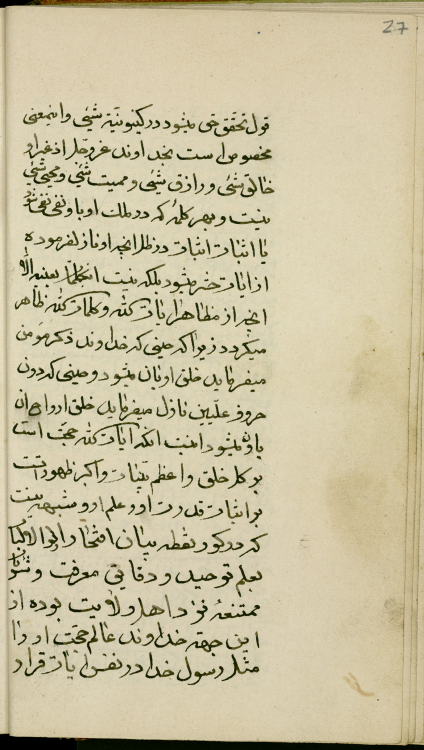 27
قول تحقق حق میشود در کینونیة شیئی و این معنی
مخصوص است بخداوند عز وجل از غیر او
خالق شیئی و رازق شیئی و ممیت شیئی و محیی شیئی
نیست و بهر کلمهٔ که در ملک او باو نفی نفی شود
یا اثبات اثبات در ظل انچه او نازل فرموده
از ایات حشر میشود بلکه نیست انکلمه بعینه الا
انچه از مظاهر ایات کلشیء و کلمات کلشیء ظاهر
میگردد زیرا که حینی که خداوند ذکر مؤمن
میفرماید خلق او بان میشود و حینی که دون
حروف علیین نازل میفرماید خلق ارواح ان
باو میشود اینست انکه ایات کلشیء حجت است
بر کل خلق و اعظم بینات و اکبر ظهورات است
بر اثبات قدرت او و علم او و شبهه نیست
که در کور نقطه بیان افتخار اولو الالباب
بعلم توحید و دقایق معرفت و شئونات
ممتنعهٔ نزد اهل ولایت بوده از
این جهة خداوند عالم حجت او را
مثل رسول خدا در نفس ایات قرار